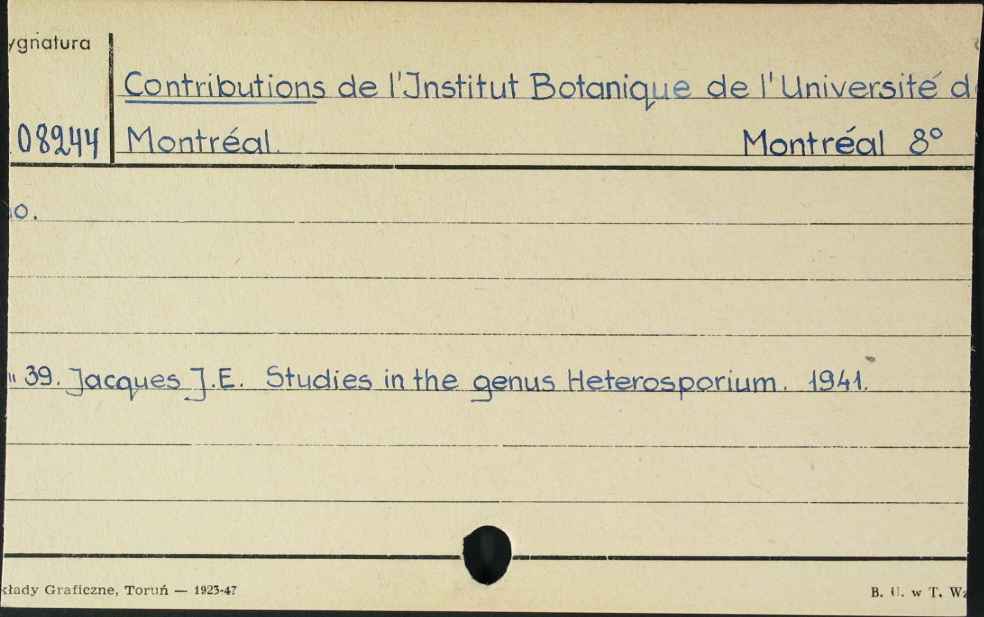 ygnatura
Contributions de l'Institut Botanique de l'Université d
08244 Montréal. Montréal 8°
o.
" 39. Jacques J.E. Studies in the genus Heterosporium. 1941.
kłady Graficzne, Toruń — 1923-47 B. U. w T. Wz